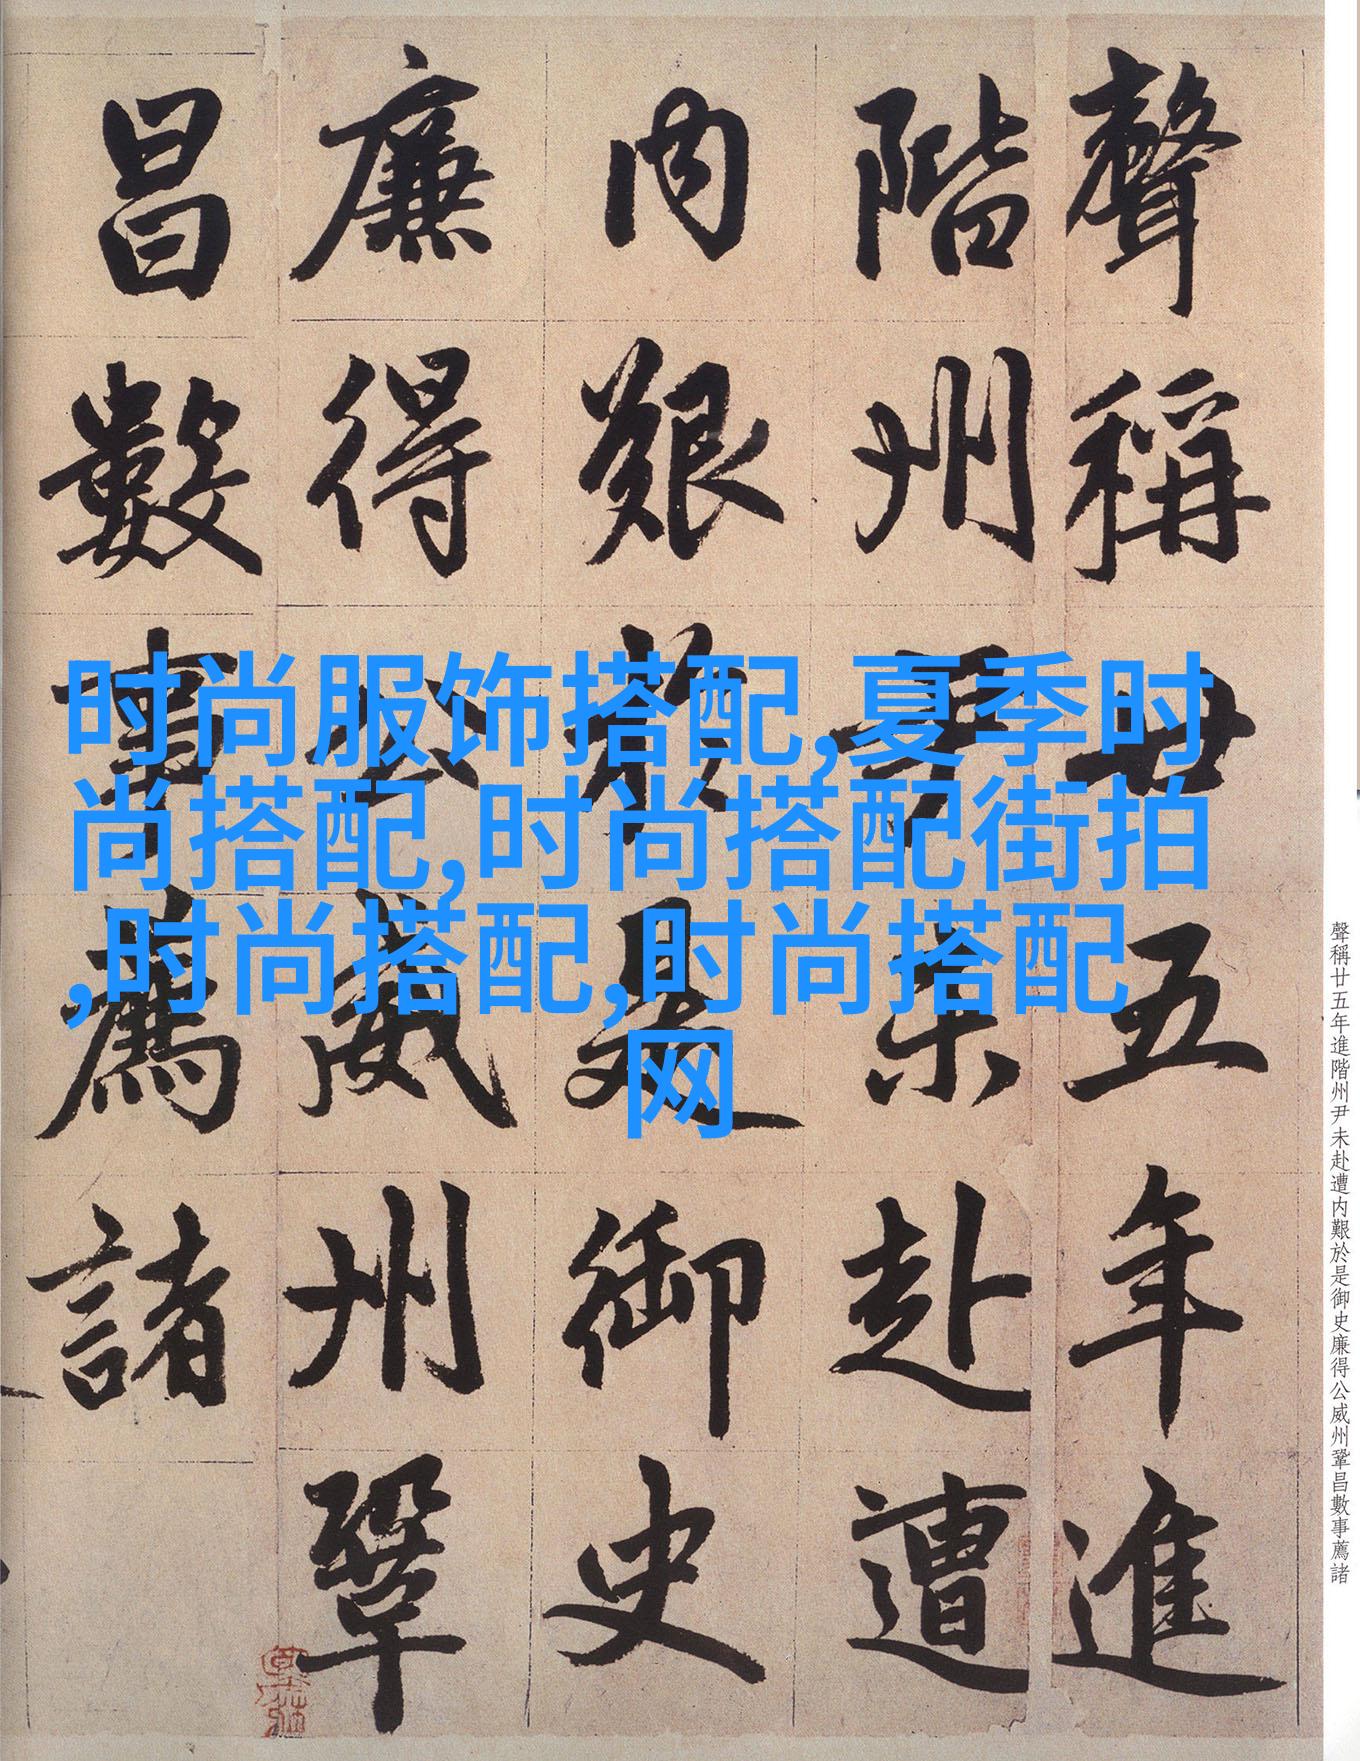 聲稱廿五年進
階州尹未赴遭
内艱於是御史
廉得公威州鞏
昌數事薦諸
时尚服饰搭配,夏季时
尚搭配,时尚搭配街拍
,时尚搭配,时尚搭配
网
聲稱廿五年進階州尹未赴遭内艱於是御史廉得公威州鞏昌數事薦諸